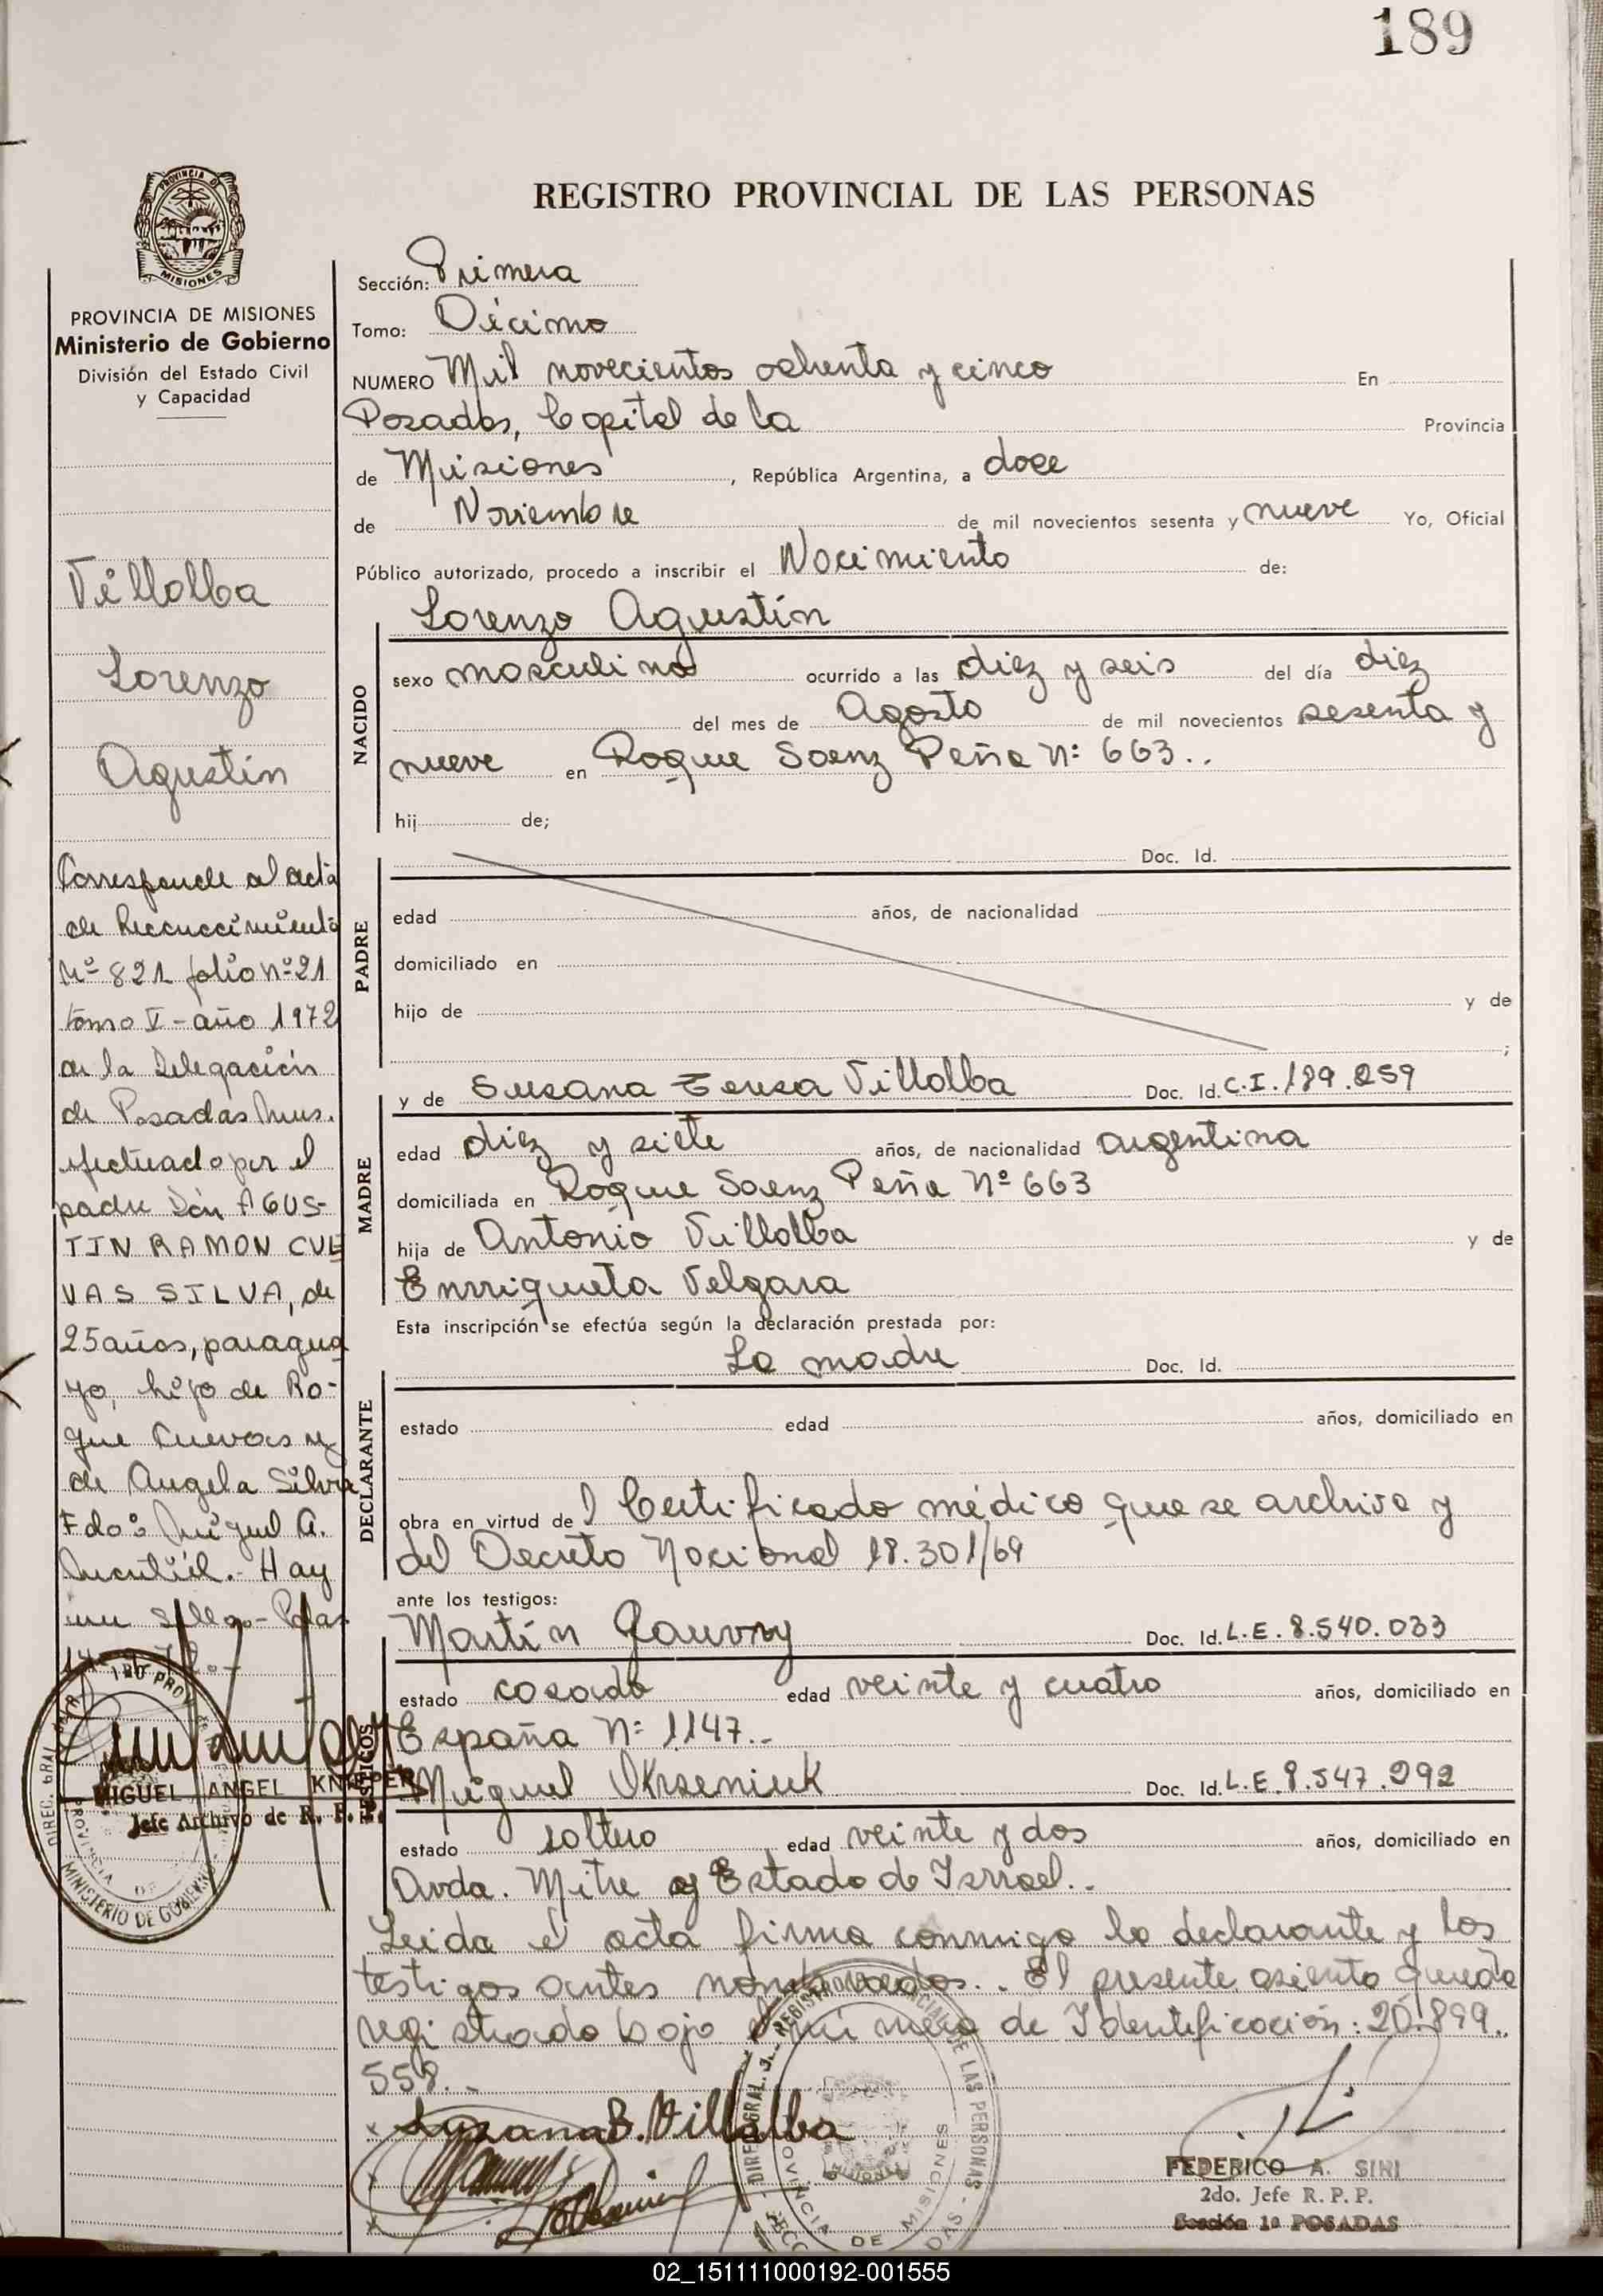 189
PROVINCIA DE
MISIONES
REGISTRO PROVINCIAL DE LAS PERSONAS
PROVINCIA DE MISIONES
Ministerio de Gobierno
División del Estado Civil
y Capacidad
Villalba
Lorenzo
Agustin
Corresponde al acta
de Reconocimiento
Nº 821 folio nº 21
tomo V - año 1972
de la Delegación
de Posadas Mnes.
efectuado por el
padre Don AGUS-
TIN RAMON CUE
VAS SILVA, de
25 años, paragua
yo, hijo de Ro-
que Cuevas y
de Angela Silva
Fdo: Miguel A.
Hay
un sello -
MIGUEL ANGEL KNIEPER
Jefe Archivo de R. P. P.
MINISTERIO DE GOBIERNO
Sección: Primera
Tomo: Décimo
NUMERO Mil novecientos ochenta y cinco En
Posadas, Capital de la Provincia
de Misiones, República Argentina, a doce
de Noviembre de mil novecientos sesenta y nueve Yo, Oficial
Público autorizado, procedo a inscribir el Nacimiento de:
Lorenzo Agustín
NACIDO
sexo masculino ocurrido a las diez y seis del día diez
del mes de Agosto de mil novecientos sesenta y
nueve en Roque Saenz Peña Nº 663..
hij de;
Doc. Id.
PADRE
edad años, de nacionalidad
domiciliado en
hijo de y de
;
y de Susana Teresa Villalba Doc. Id. C.I. 189.259
MADRE
edad diez y siete años, de nacionalidad argentina
domiciliada en Roque Saenz Peña Nº 663
hija de Antonio Villalba y de
Enrriqueta Velgara
Esta inscripción se efectúa según la declaración prestada por:
La madre Doc. Id.
DECLARANTE
estado edad años, domiciliado en
obra en virtud de l Certificado médico que se archiva y
del Decreto Nacional 18.301/69
ante los testigos:
TESTIGOS
Martín Gauvry Doc. Id. L.E. 8.540.033
estado casado edad veinte y cuatro años, domiciliado en
España Nº 1147..
Miguel Krseniuk Doc. Id. L.E. 8.547.292
estado soltero edad veinte y dos años, domiciliado en
Avda. Mitre y Estado de Israel..
Leida el acta firma conmigo la declarante y los
testigos antes nombrados.. El presente asiento queda
registrado bajo el número de Identificación: 20.899.
558..
Susana B. Villalba
PROVINCIA DE MISIONES
FEDERICO A. SINI
2do. Jefe R. P. P.
Sección 1ª POSADAS
02_151111000192-001555